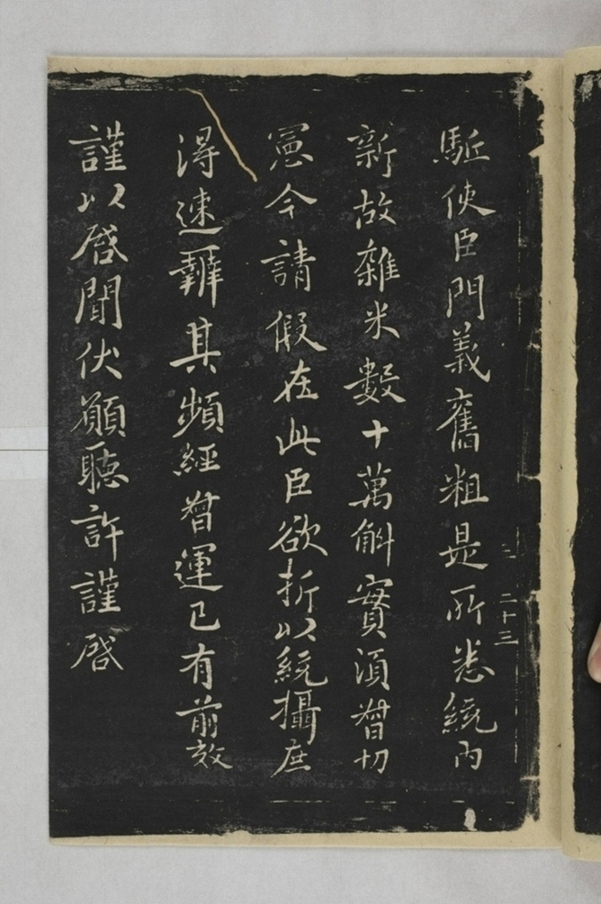 駈使臣門義舊粗是所悉統內
新故雜米數十萬斛實須督切
寃今請假在此臣欲折以統攝庶
得速辦其頻經督運已有前效
謹以啓聞伏願聽許謹啓
三 二十三